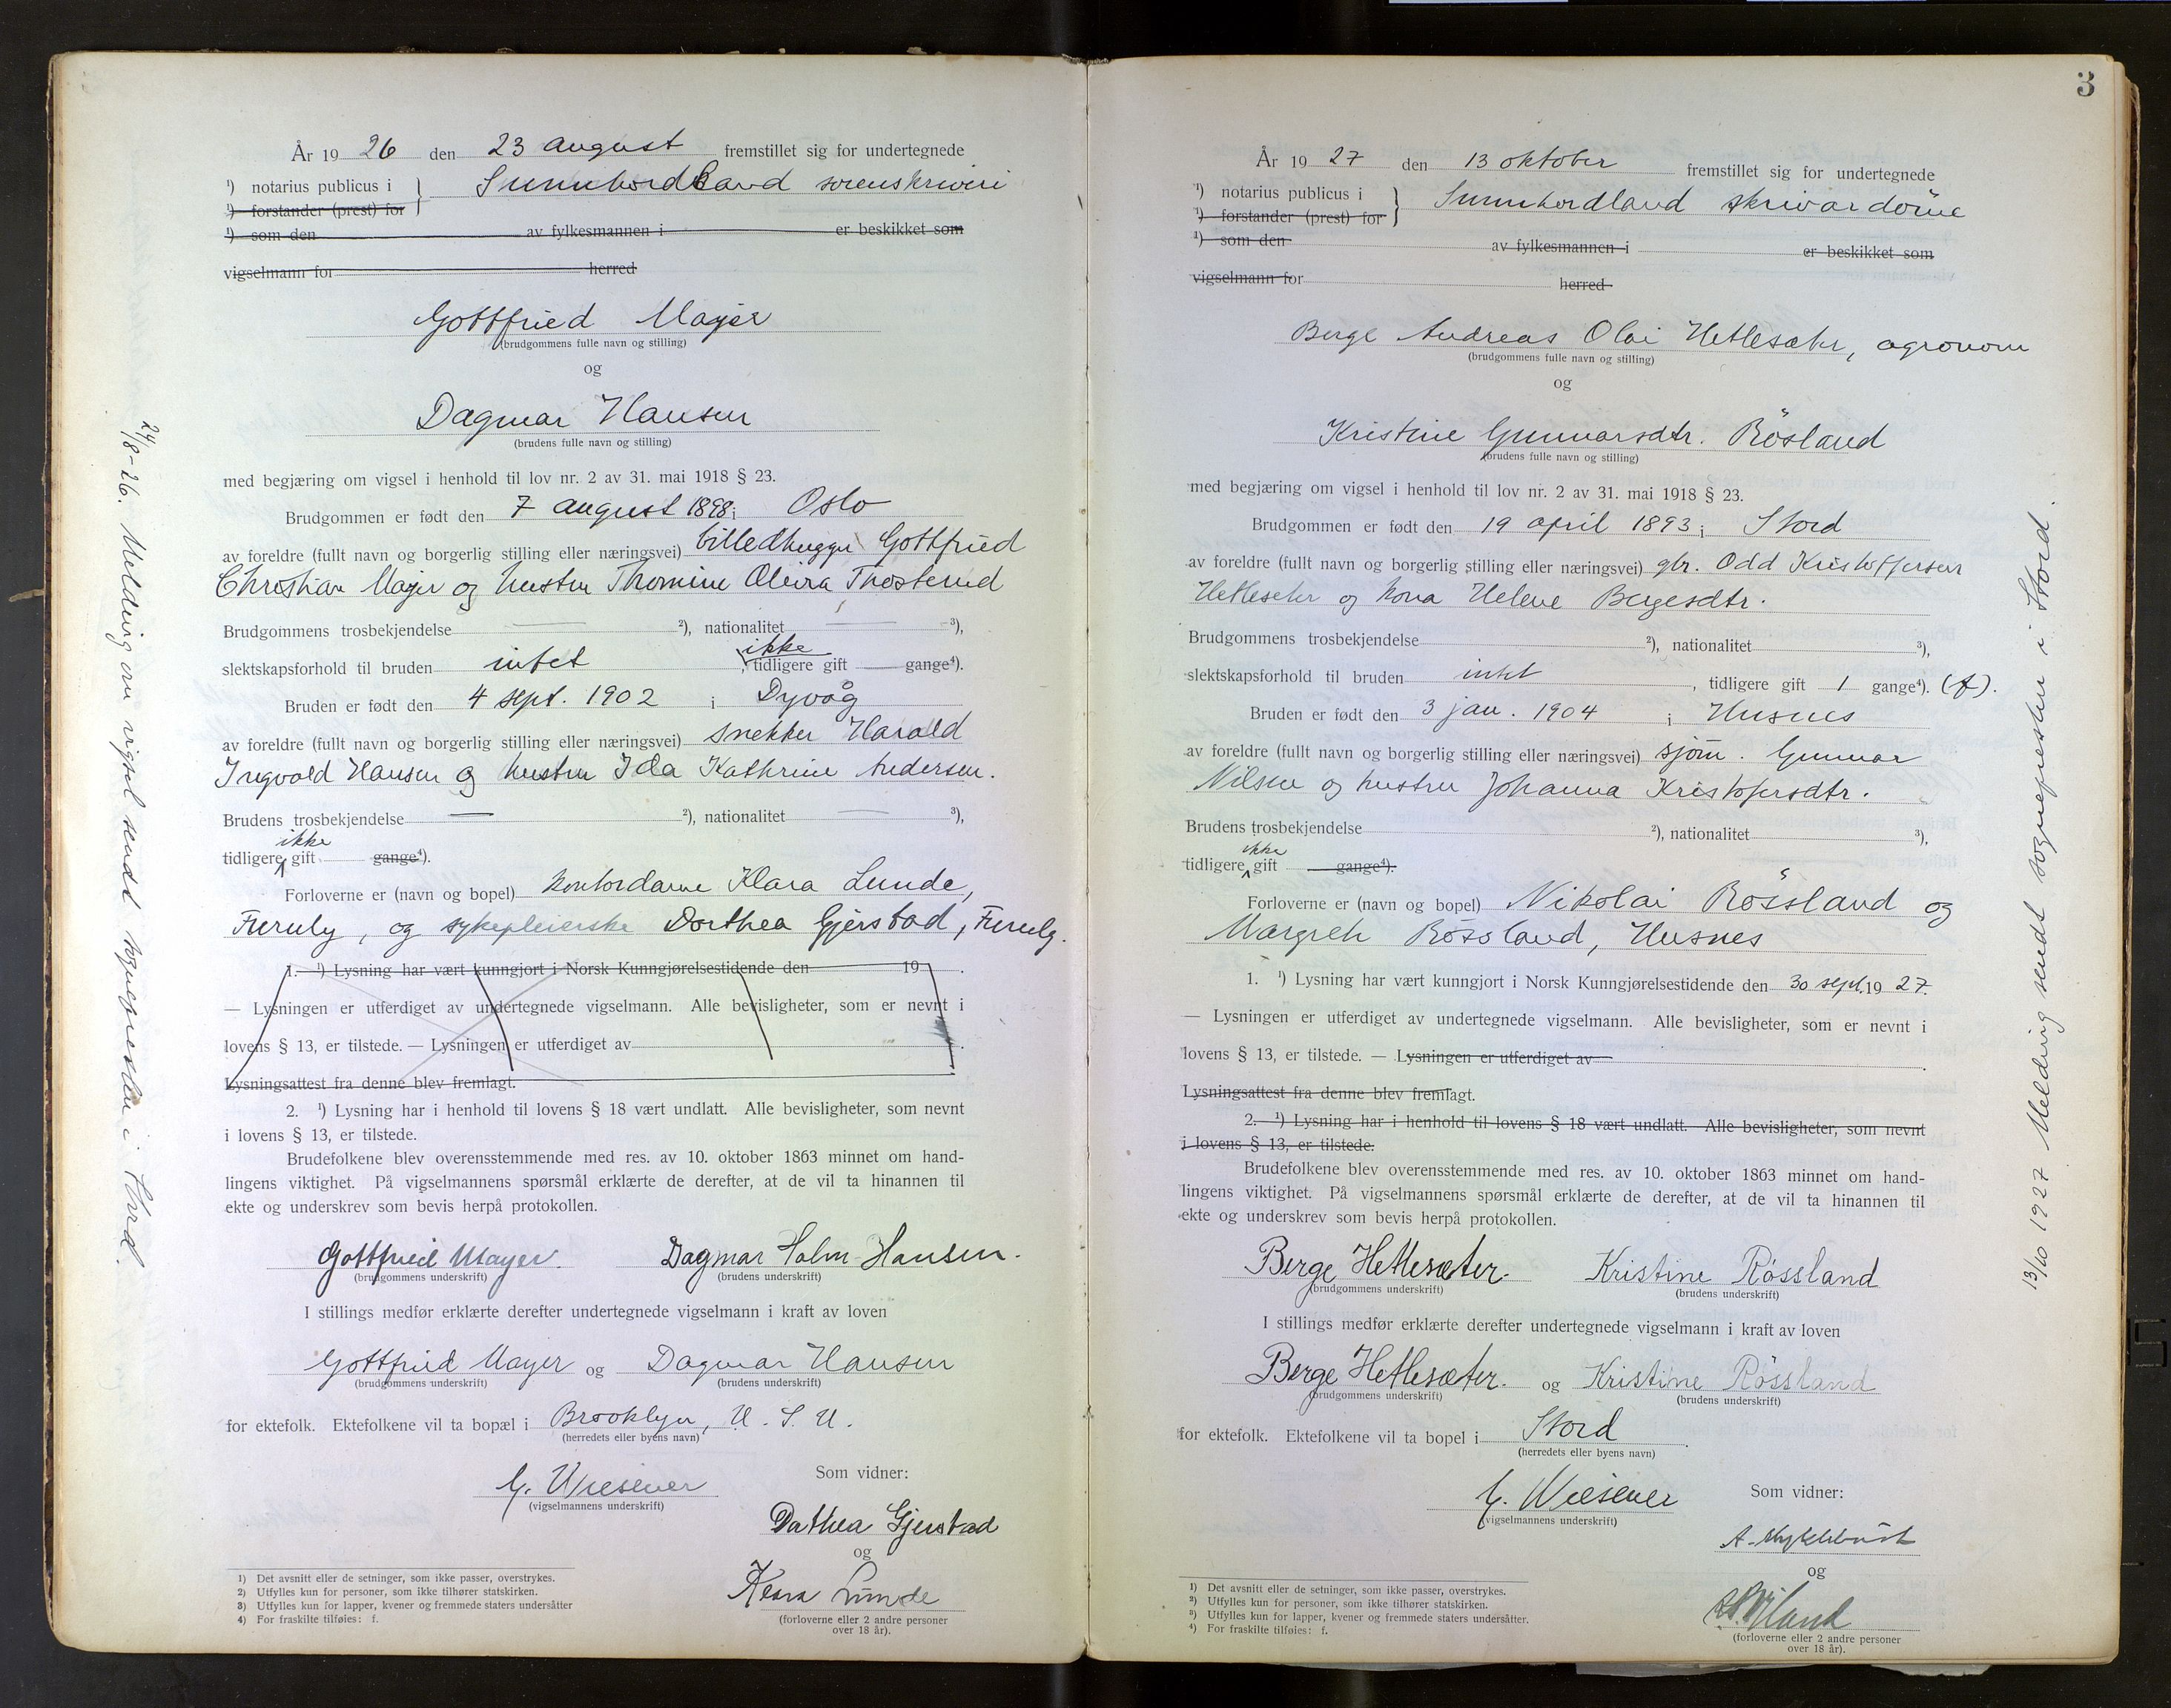 År 19 26 den 23 august fremstillet sig for undertegnede
¹) notarius publicus i } Sunnhordland sorenskriveri
¹) forstander (prest) for
¹) som den av fylkesmannen i er beskikket som
vigselmann for herred
Gottfried Mayer
(brudgommens fulle navn og stilling)
og
Dagmar Hansen
(brudens fulle navn og stilling)
med begjæring om vigsel i henhold til lov nr. 2 av 31. mai 1918 § 23.
Brudgommen er født den 7 august 1898 i Oslo
av foreldre (fullt navn og borgerlig stilling eller næringsvei) billedhugger Gottfried
Christian Mayer og hustru Thomine Oleira Thosterud
Brudgommens trosbekjendelse — ²), nationalitet — ³),
slektskapsforhold til bruden intet , ikke tidligere gift — gange⁴).
Bruden er født den 4 sept. 1902 i Dyvåg
av foreldre (fullt navn og borgerlig stilling eller næringsvei) snekker Harald
Ingvald Hansen og hustru Ida Kathrine Andersen.
Brudens trosbekjendelse — ²), nationalitet — ³),
ikke
tidligere gift gange⁴).
Forloverne er (navn og bopel) kontordame Klara Lunde,
Furuly, og sykepleierske Dorthea Gjerstad, Furuly.
1. ¹) Lysning har vært kunngjort i Norsk Kunngjørelsestidende den 19 .
— Lysningen er utferdiget av undertegnede vigselmann. Alle bevisligheter, som er nevnt i
lovens § 13, er tilstede. — Lysningen er utferdiget av .
Lysningsattest fra denne blev fremlagt.
2. ¹) Lysning har i henhold til lovens § 18 vært undlatt. Alle bevisligheter, som nevnt
i lovens § 13, er tilstede.
Brudefolkene blev overensstemmende med res. av 10. oktober 1863 minnet om hand-
lingens viktighet. På vigselmannens spørsmål erklærte de derefter, at de vil ta hinannen til
ekte og underskrev som bevis herpå protokollen.
Gottfried Mayer. Dagmar Holm-Hansen.
(brudgommens underskrift) (brudens underskrift)
I stillings medfør erklærte derefter undertegnede vigselmann i kraft av loven
Gottfried Mayer og Dagmar Hansen
(brudgommens underskrift) (brudens underskrift)
for ektefolk. Ektefolkene vil ta bopæl i Brooklyn, U. S. A.
(herredets eller byens navn)
G. Wiesener
(vigselmannens underskrift)
Som vidner:
Dathea Gjerstad
og
Klara Lunde
(forloverne eller 2 andre personer
over 18 år).
1) Det avsnitt eller de setninger, som ikke passer, overstrykes.
2) Utfylles kun for personer, som ikke tilhører statskirken.
3) Utfylles kun for lapper, kvener og fremmede staters undersåtter
4) For fraskilte tilføies: f.
24/8-26. Melding om vigsel sendt sognepresten i Stord.
3
År 19 27 den 13 oktober fremstillet sig for undertegnede
¹) notarius publicus i } Sunnhordland skrivardøme
¹) forstander (prest) for
¹) som den av fylkesmannen i er beskikket som
vigselmann for herred
Berge Andreas Olai Hetlesæter, agronom
(brudgommens fulle navn og stilling)
og
Kristine Gunnarsdtr. Rösland
(brudens fulle navn og stilling)
med begjæring om vigsel i henhold til lov nr. 2 av 31. mai 1918 § 23.
Brudgommen er født den 19 april 1893 i Stord
av foreldre (fullt navn og borgerlig stilling eller næringsvei) gbr. Odd Kristoffersen
Hetleseter og kona Helene Bergesdtr.
Brudgommens trosbekjendelse ²), nationalitet ³),
slektskapsforhold til bruden intet , tidligere gift 1 gange⁴). (f).
Bruden er født den 3 jan. 1904 i Husnes
av foreldre (fullt navn og borgerlig stilling eller næringsvei) sjöm. Gunnar
Nilsen og hustru Johanna Kristofersdtr.
Brudens trosbekjendelse ²), nationalitet ³),
ikke
tidligere gift gange⁴).
Forloverne er (navn og bopel) Nikolai Rössland og
Margreth Rössland, Husnes
1. ¹) Lysning har vært kunngjort i Norsk Kunngjørelsestidende den 30 sept. 19 27.
— Lysningen er utferdiget av undertegnede vigselmann. Alle bevisligheter, som er nevnt i
lovens § 13, er tilstede. — Lysningen er utferdiget av .
Lysningsattest fra denne blev fremlagt.
2. ¹) Lysning har i henhold til lovens § 18 vært undlatt. Alle bevisligheter, som nevnt
i lovens § 13, er tilstede.
Brudefolkene blev overensstemmende med res. av 10. oktober 1863 minnet om hand-
lingens viktighet. På vigselmannens spørsmål erklærte de derefter, at de vil ta hinannen til
ekte og underskrev som bevis herpå protokollen.
Berge Hetlesæter. Kristine Røssland
(brudgommens underskrift) (brudens underskrift)
I stillings medfør erklærte derefter undertegnede vigselmann i kraft av loven
Berge Hetlesæter. og Kristine Røssland
(brudgommens underskrift) (brudens underskrift)
for ektefolk. Ektefolkene vil ta bopel i Stord .
(herredets eller byens navn)
G. Wiesener
(vigselmannens underskrift)
Som vidner:
A. Myklebust
og
(forloverne eller 2 andre personer
over 18 år).
¹) Det avsnitt eller de setninger, som ikke passer, overstrykes.
²) Utfylles kun for personer, som ikke tilhører statskirken.
³) Utfylles kun for lapper, kvener og fremmede staters undersåtter.
⁴) For fraskilte tilføies: f.
13/10 1927 Melding sendt sognepresten i Stord.